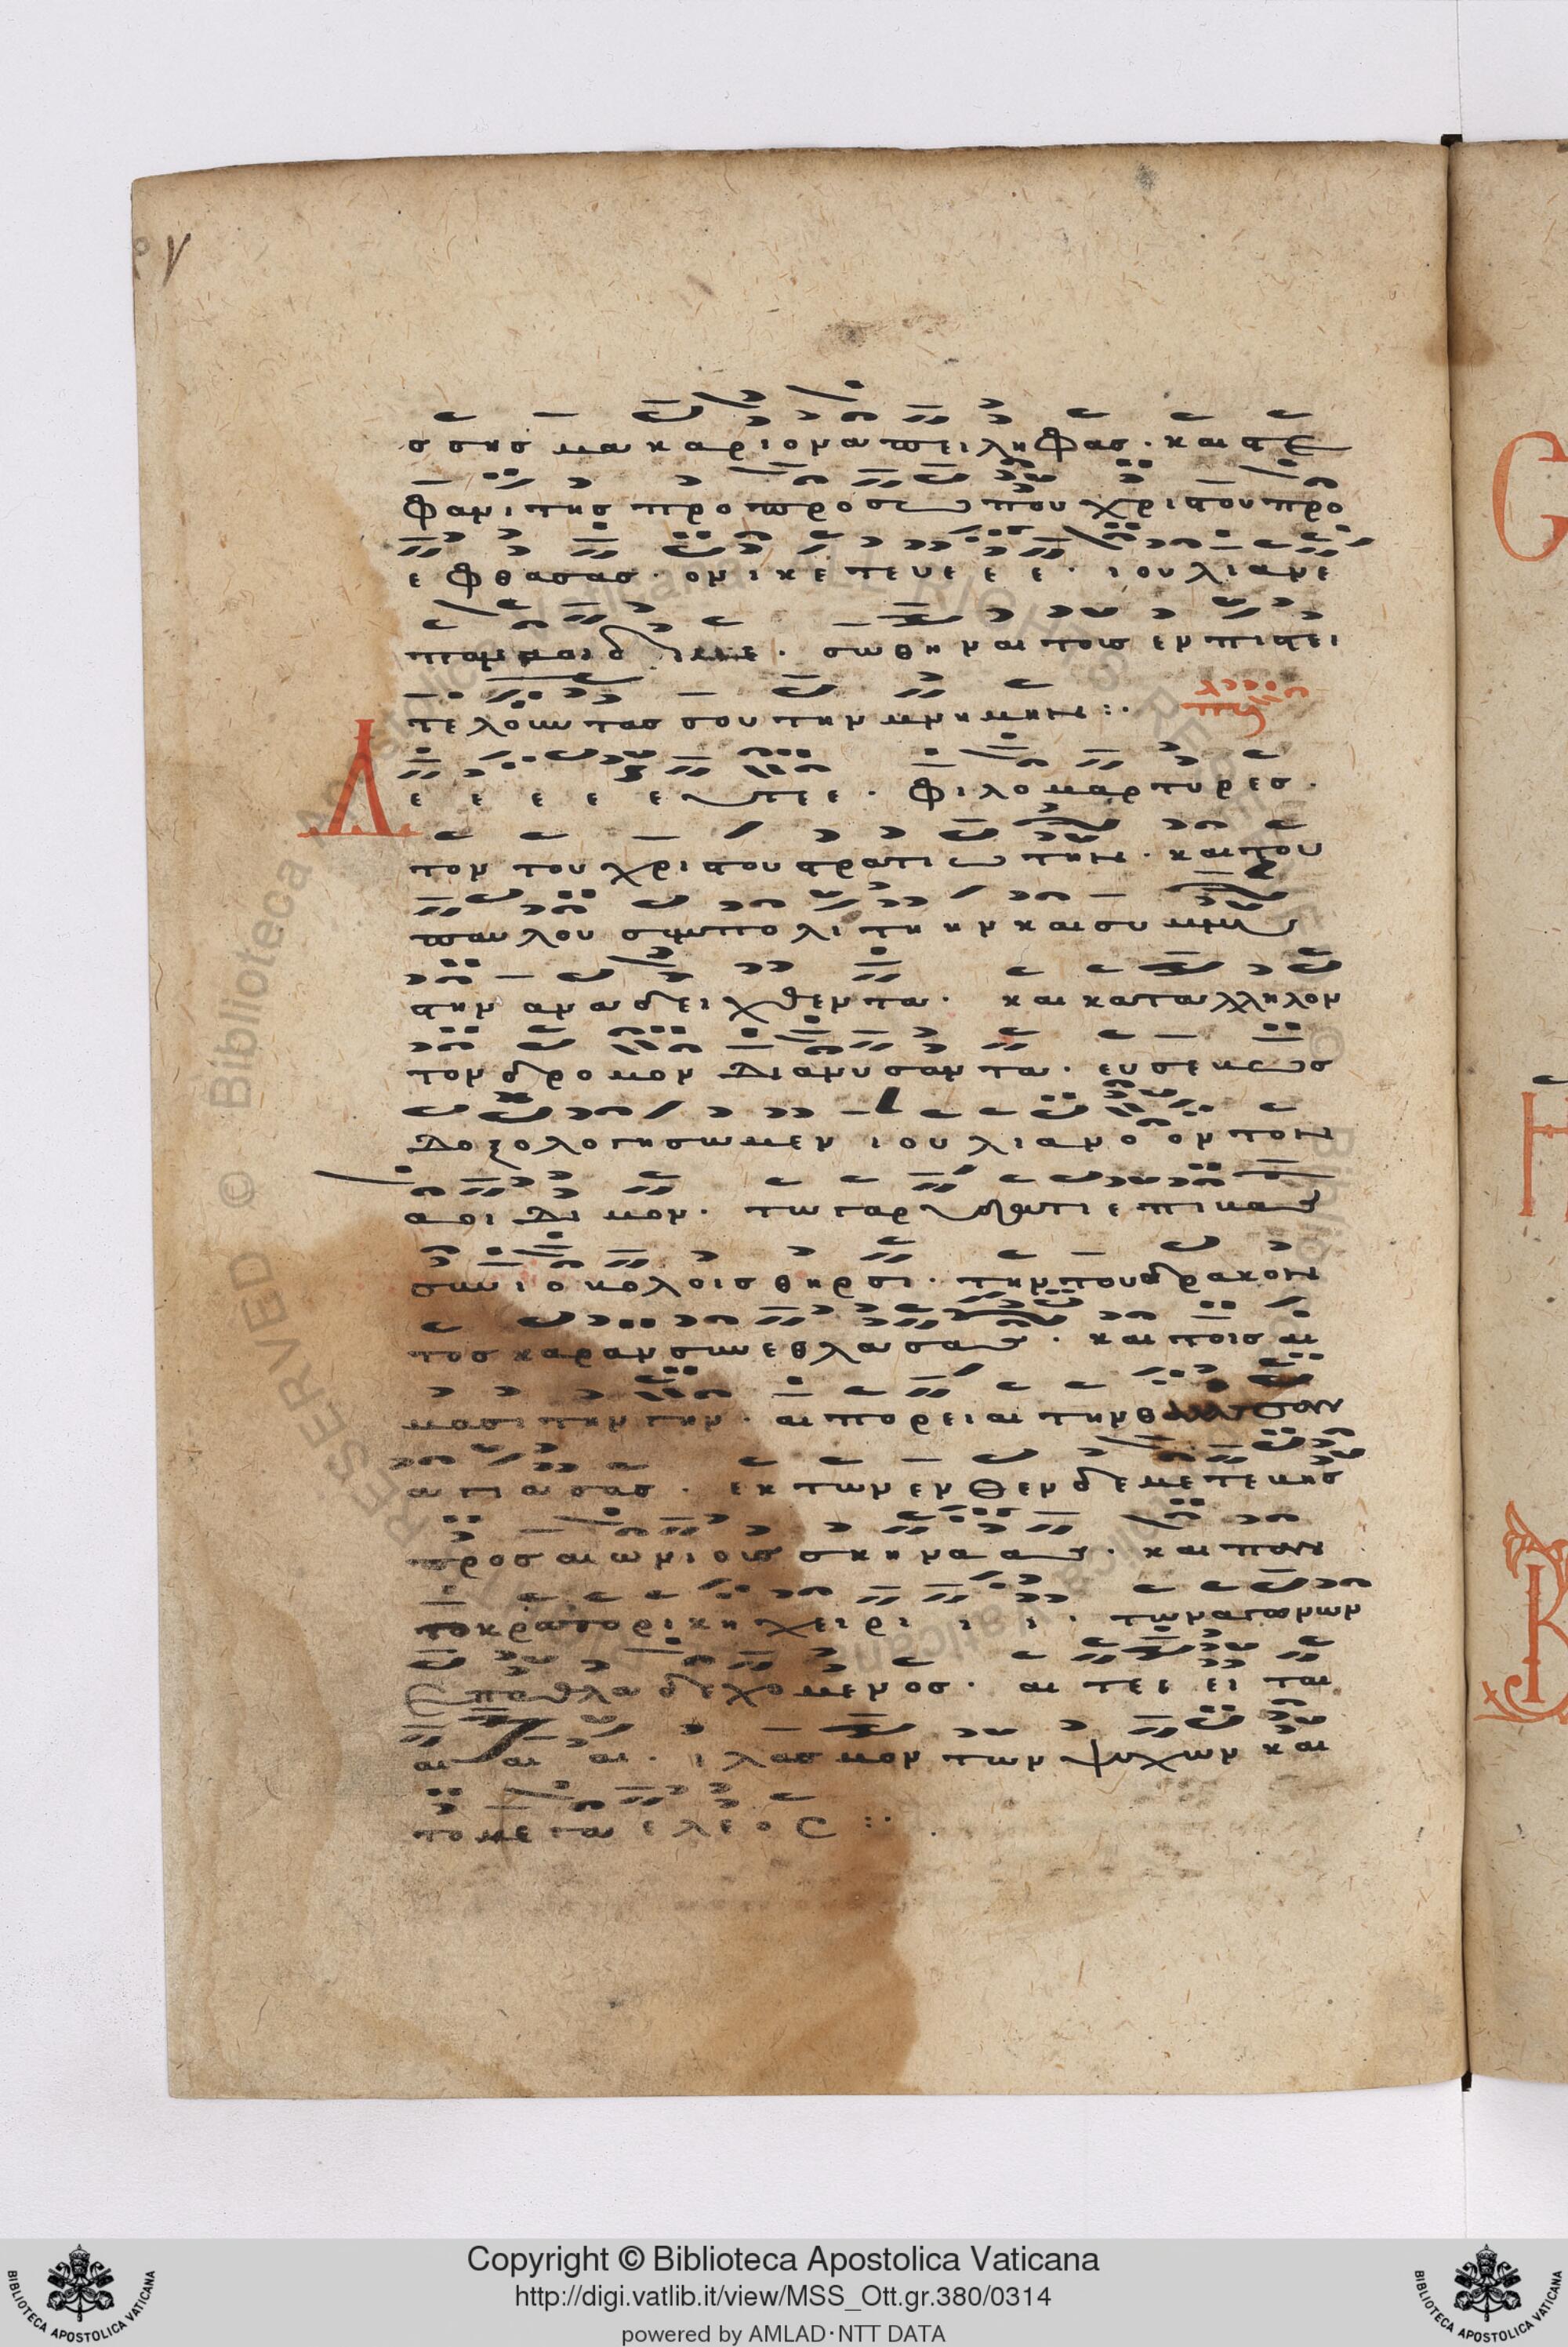 σσησ μακαριοματοειληφας · και στε
φανιτησ προ προσωπου χριστου προ
εφθασας · ον ικετευεεε · ιουλιανε
παμμακαριε · σωθηναι τους εν πιστει
τελουντας σου την μνημην :·
Δεεεεευτεε · φιλομαρτυρες ·
τον του χριστου στρατιωτην · και του
παυλου συμπολιτηην και συμμυ
στην αναδειχθεντα · και καταλληλον
τον δρομον διανυσαντα · ευσεβως
δοξολογησωμεν ιουλιανοον τον
αοιδιμον · τω γαρ
συν ιοβολοις θηρσι · την του δρακον
τος καραν συνεθλασας · και τοις αι
μασι την γην · αι πορειαι την θαλασσαν
αγιασας · εκ των ενθενδε μετεβης
προς αιωνιους σκηνας · και παν
τοκρατορικη χειριιι · των αγωνων
επαθλα δεχομενος · αιτεειται
αιαιαι · ιλασμον των ψυχων και
το μεγα ελεος :·
Copyright © Biblioteca Apostolica Vaticana
http://digi.vatlib.it/view/MSS_Ott.gr.380/0314
powered by AMLAD·NTT DATA
BIBLIOTECA APOSTOLICA VATICANA
BIBLIOTECA APOSTOLICA VATICANA